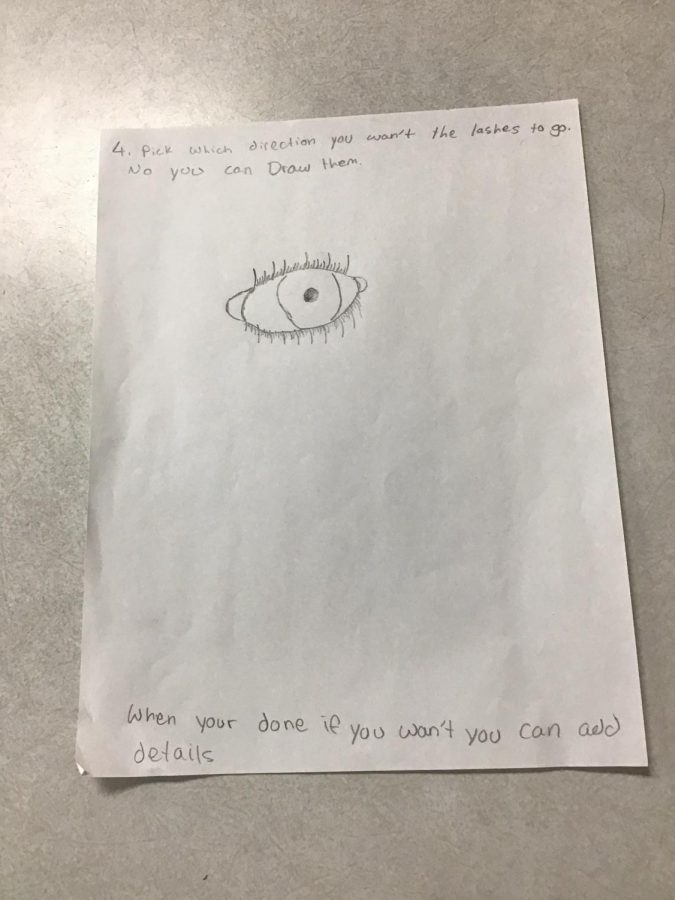 4. Pick which direction you wan't the lashes to go.
No you can Draw them.
When your done if you wan't you can add
details